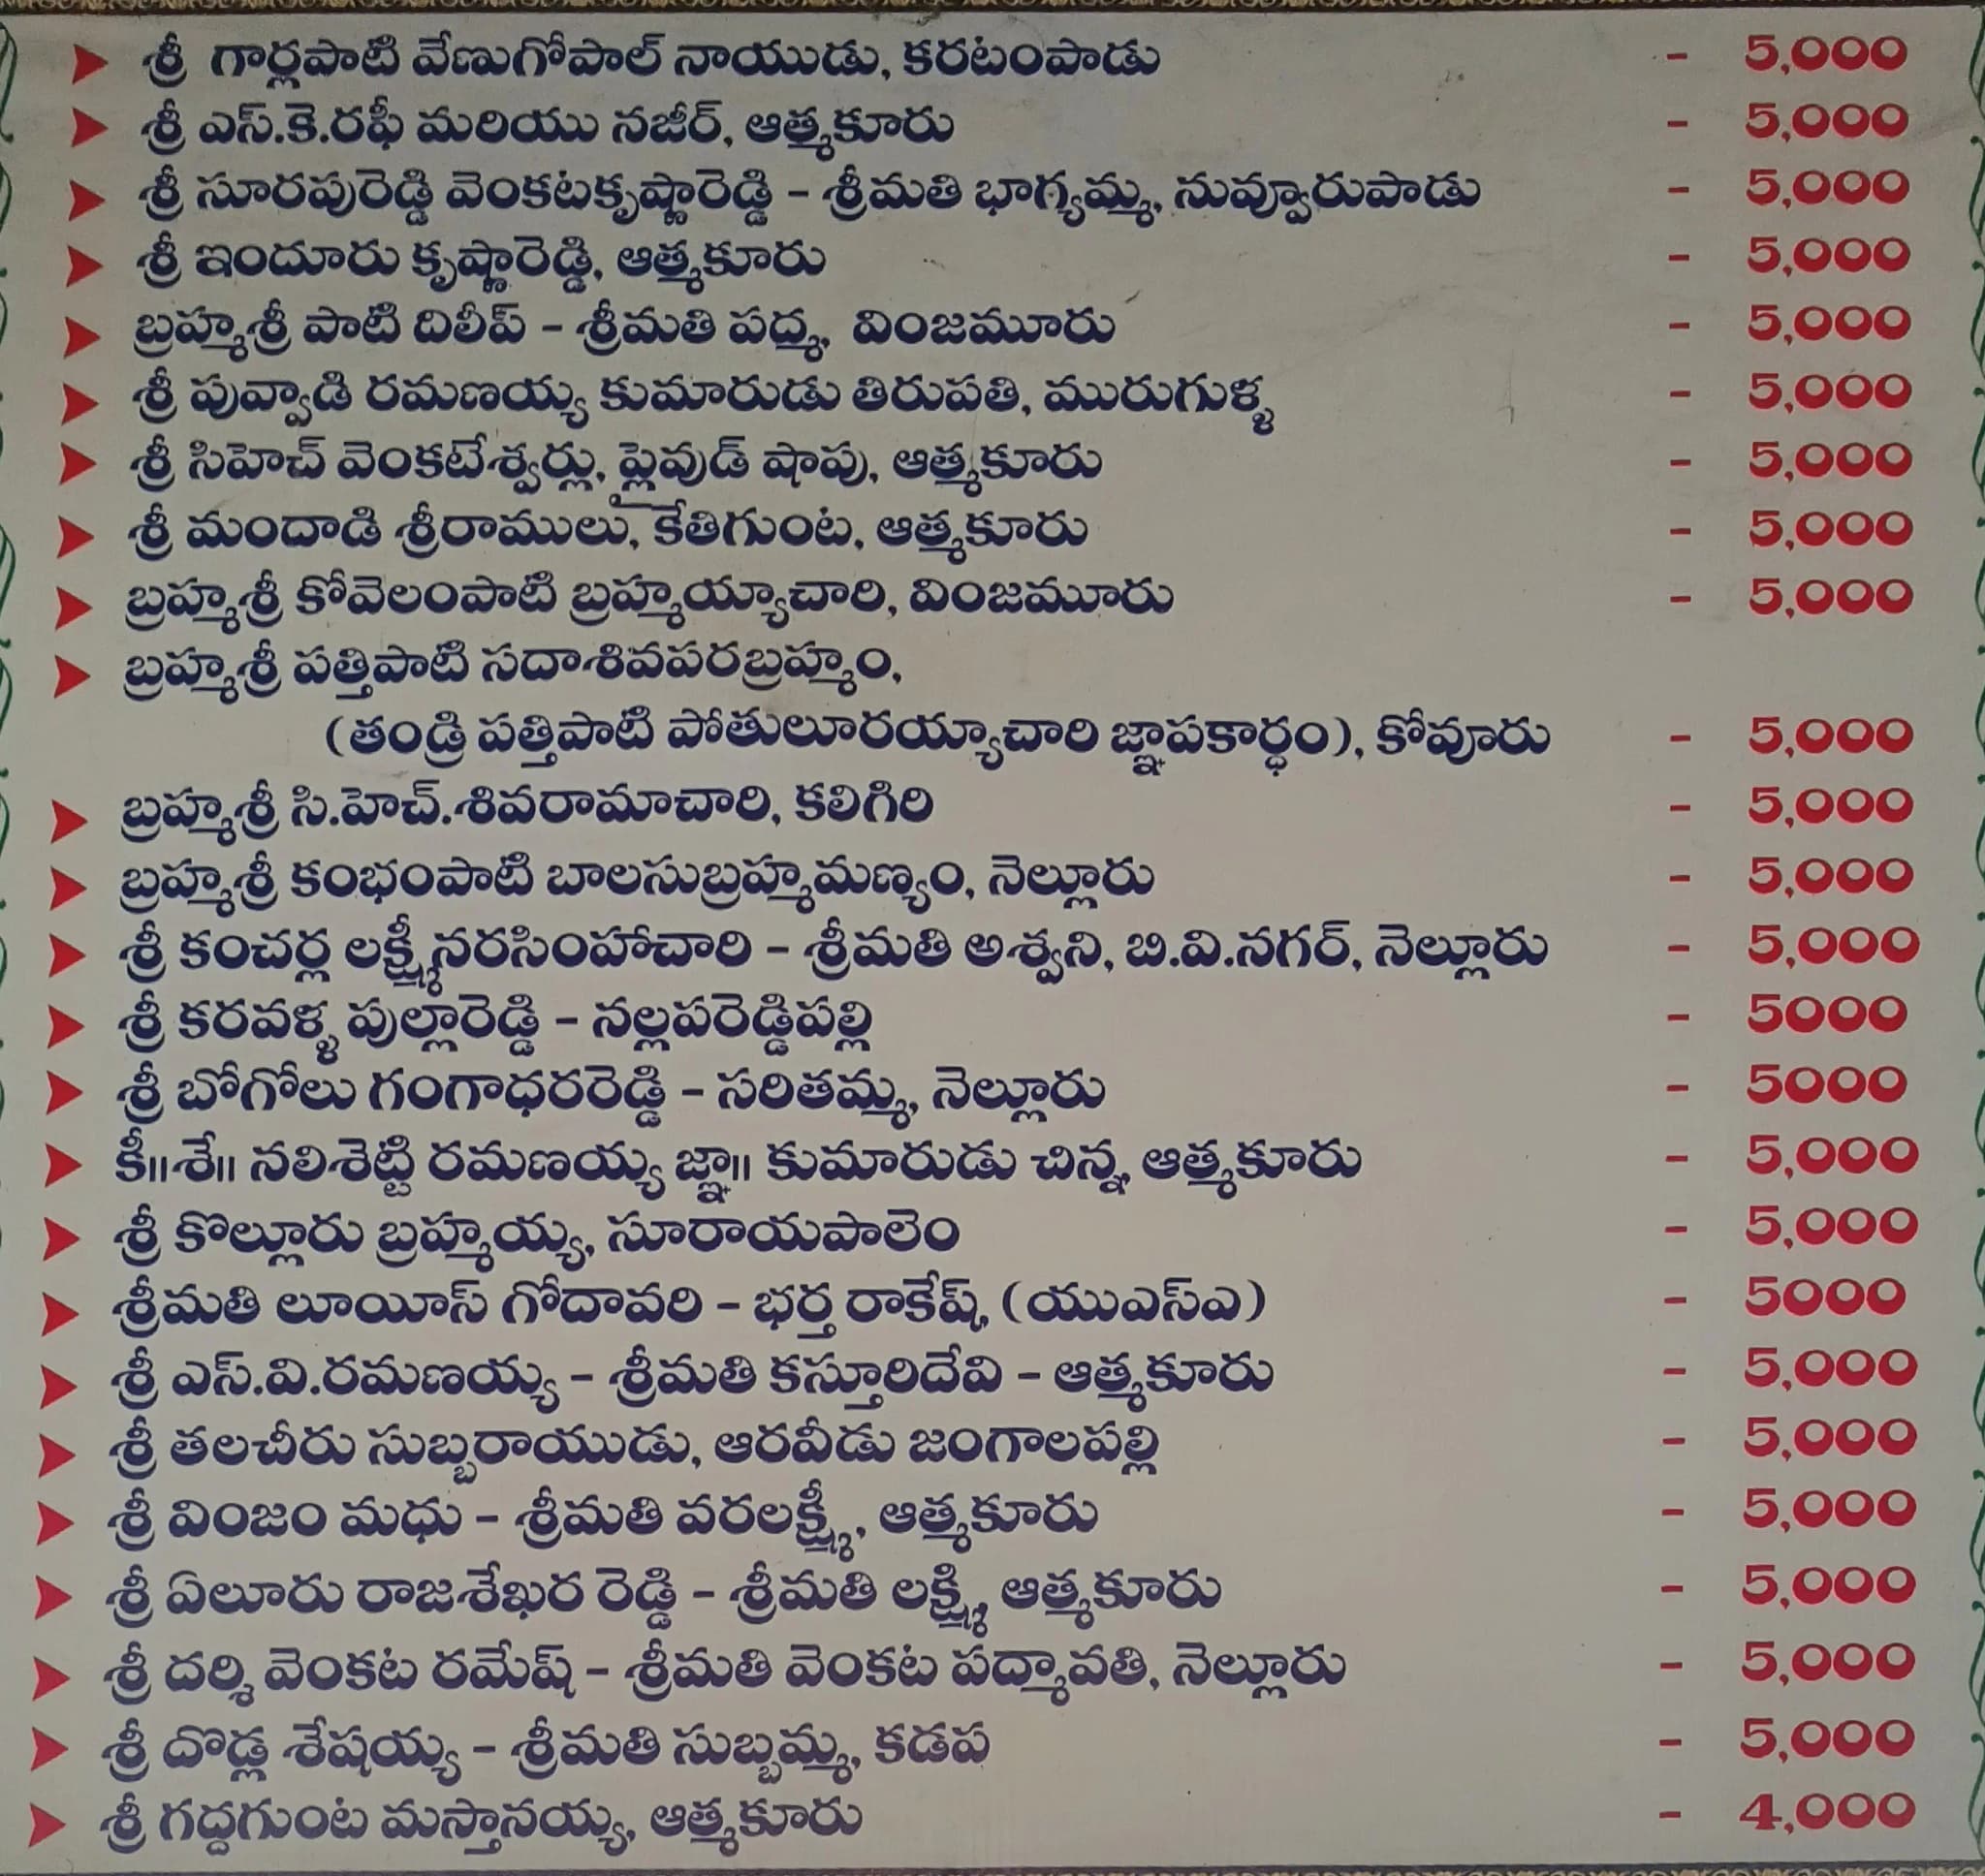 ➤ శ్రీ గార్లపాటి వేణుగోపాల్ నాయుడు, కరటంపాడు - 5,000
➤ శ్రీ ఎస్.కె.రఫీ మరియు నజీర్, ఆత్మకూరు - 5,000
➤ శ్రీ సూరపురెడ్డి వెంకటకృష్ణారెడ్డి - శ్రీమతి భాగ్యమ్మ, నువ్వూరుపాడు - 5,000
➤ శ్రీ ఇందూరు కృష్ణారెడ్డి, ఆత్మకూరు - 5,000
➤ బ్రహ్మశ్రీ పాటి దిలీప్ - శ్రీమతి పద్మ, వింజమూరు - 5,000
➤ శ్రీ పువ్వాడి రమణయ్య కుమారుడు తిరుపతి, మురుగుళ్ళ - 5,000
➤ శ్రీ సిహెచ్ వెంకటేశ్వర్లు, ప్లైవుడ్ షాపు, ఆత్మకూరు - 5,000
➤ శ్రీ మందాడి శ్రీరాములు, కేతిగుంట, ఆత్మకూరు - 5,000
➤ బ్రహ్మశ్రీ కోవెలంపాటి బ్రహ్మయ్యాచారి, వింజమూరు - 5,000
➤ బ్రహ్మశ్రీ పత్తిపాటి సదాశివపరబ్రహ్మం,
(తండ్రి పత్తిపాటి పోతులూరయ్యాచారి జ్ఞాపకార్ధం), కోవూరు - 5,000
➤ బ్రహ్మశ్రీ సి.హెచ్.శివరామాచారి, కలిగిరి - 5,000
➤ బ్రహ్మశ్రీ కంభంపాటి బాలసుబ్రహ్మమణ్యం, నెల్లూరు - 5,000
➤ శ్రీ కంచర్ల లక్ష్మీనరసింహాచారి - శ్రీమతి అశ్వని, బి.వి.నగర్, నెల్లూరు - 5,000
➤ శ్రీ కరవళ్ళ పుల్లారెడ్డి - నల్లపరెడ్డిపల్లి - 5000
➤ శ్రీ బోగోలు గంగాధరరెడ్డి - సరితమ్మ, నెల్లూరు - 5000
➤ కీ॥శే॥ నలిశెట్టి రమణయ్య జ్ఞా॥ కుమారుడు చిన్న, ఆత్మకూరు - 5,000
➤ శ్రీ కొల్లూరు బ్రహ్మయ్య, సూరాయపాలెం - 5,000
➤ శ్రీమతి లూయీస్ గోదావరి - భర్త రాకేష్, (యుఎస్ఎ) - 5000
➤ శ్రీ ఎస్.వి.రమణయ్య - శ్రీమతి కస్తూరిదేవి - ఆత్మకూరు - 5,000
➤ శ్రీ తలచీరు సుబ్బరాయుడు, ఆరవీడు జంగాలపల్లి - 5,000
➤ శ్రీ వింజం మధు - శ్రీమతి వరలక్ష్మీ, ఆత్మకూరు - 5,000
➤ శ్రీ ఏలూరు రాజశేఖర రెడ్డి - శ్రీమతి లక్ష్మి, ఆత్మకూరు - 5,000
➤ శ్రీ దర్శి వెంకట రమేష్ - శ్రీమతి వెంకట పద్మావతి, నెల్లూరు - 5,000
➤ శ్రీ దొడ్ల శేషయ్య - శ్రీమతి సుబ్బమ్మ, కడప - 5,000
➤ శ్రీ గద్దగుంట మస్తానయ్య, ఆత్మకూరు - 4,000